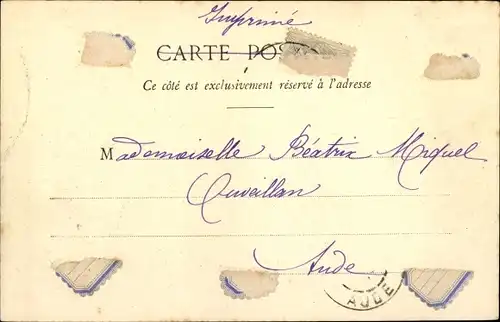 Imprimé
CARTE POSTALE
Ce côté est exclusivement réservé à l'adresse
Mademoiselle Béatrix Miquel
Ouveillan
Aude
AUDE